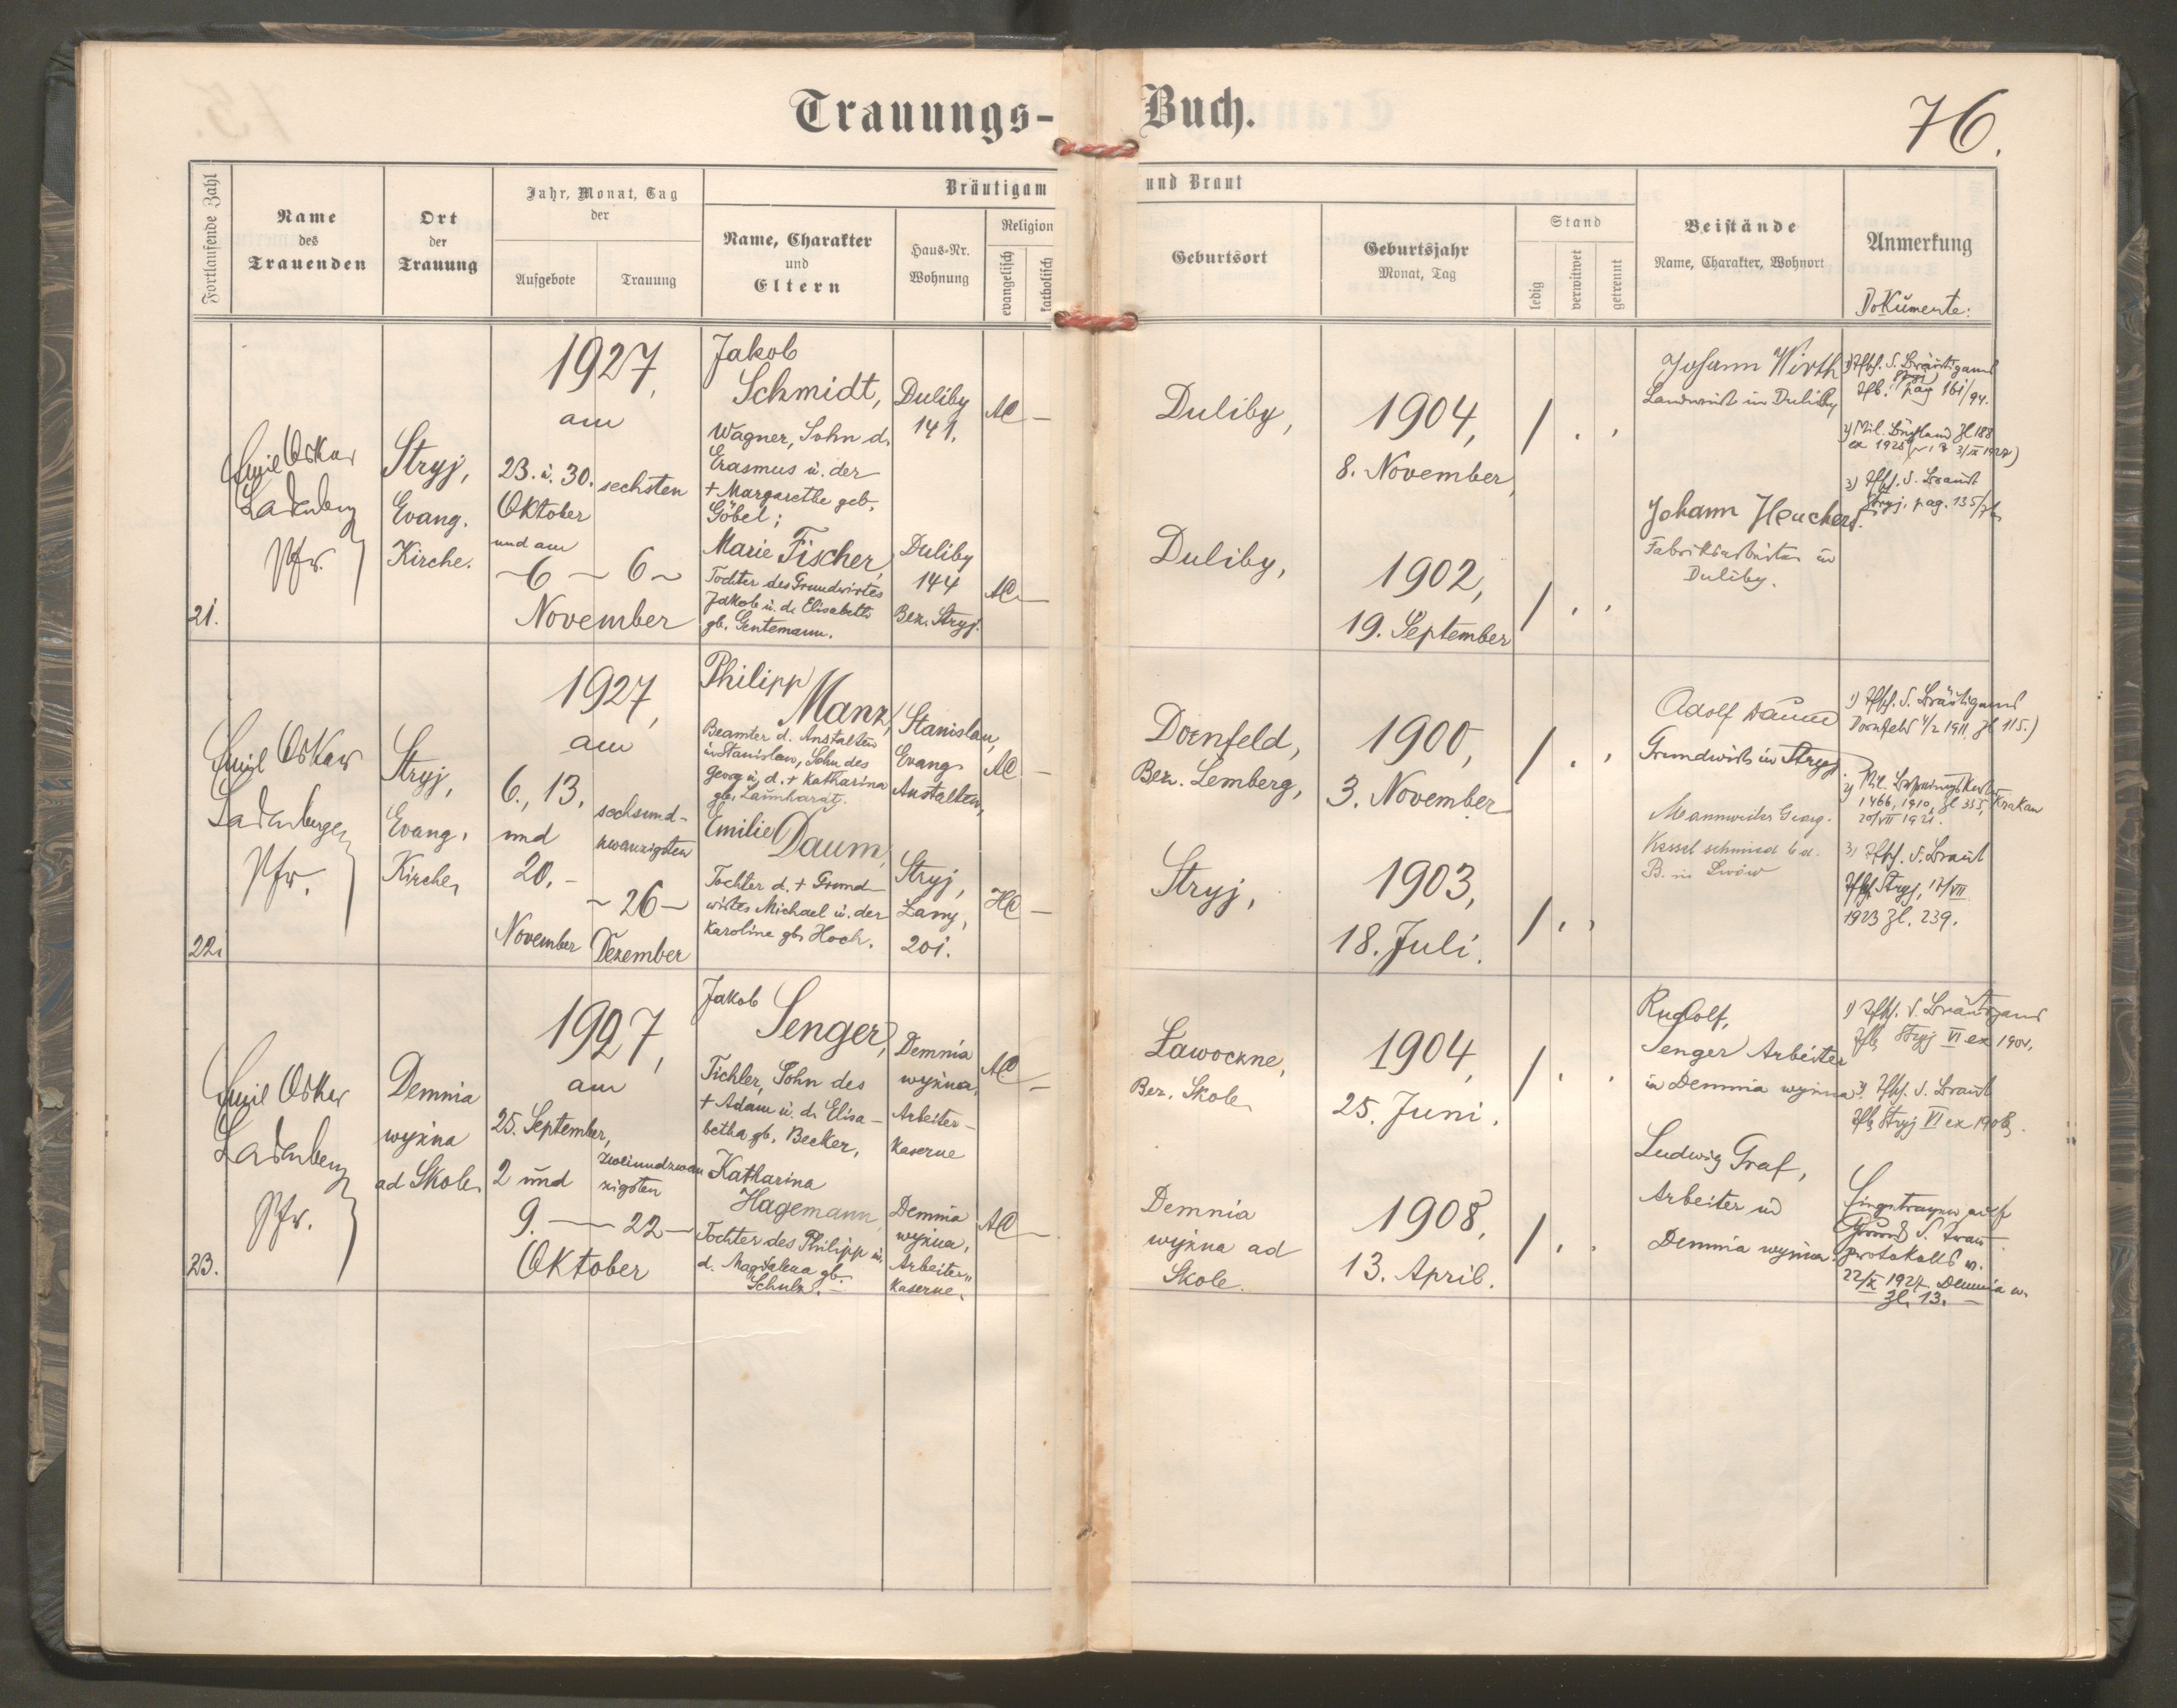 Trauungs-Buch.
76.
Fortlaufende Zahl
Name
des
Trauenden
Ort
der
Trauung
Jahr, Monat, Tag
der
Aufgebote
Trauung
Bräutigam und Braut
Name, Charakter
und
Eltern
Haus-Nr.
Wohnung
Religion
evangelisch
katholisch
Geburtsort
Geburtsjahr
Monat, Tag
Stand
ledig
verwitwet
getrennt
Beistände
Name, Charakter, Wohnort
Anmerkung
Dokumente:
21.
Emil Oskar
Ladenberger
Pfr.
Stryj,
Evang.
Kirche.
1927,
am
23. u. 30.
Oktober
und am
~6~
sechsten
6~
November
Jakob
Schmidt,
Wagner, Sohn d.
Erasmus u. der
+ Margarethe geb.
Göbel;
Marie Fischer,
Tochter des Grundwirtes
Jakob u. d. Elisabeth
gb. Gentemann.
Duliby
141.
Duliby
144
Bez. Stryj.
AC –
AC –
Duliby,
Duliby,
1904,
8. November,
1902,
19. September
/ . '
/ . '
Johann Wirth
Landwirt in Duliby
Johann Heuchert.
Fabriksarbeiter in
Duliby.
pag 161/94.
3)
Stryj, pag. 135/
22.
Emil Oskar
Ladenberger
Pfr.
Stryj,
Evang.
Kirche,
1927,
am
6., 13.
und
20. –
November
sechsund-
zwanzigsten
~ 26 –
Dezember
Philipp
Manz,
Beamter d. Anstalten
in Stanislau, Sohn des
Georg u. d. + Katharina
gb. Launhardt.
Emilie Daum,
Tochter d. + Grund-
wirtes Michael u. der
Karoline gb. Hoch.
Stanislau,
Evang.
Anstalten,
Stryj,
Łany,
201.
AC –
HC –
Dornfeld,
Bez. Lemberg,
Stryj,
1900,
3. November
1903,
18. Juli.
/ . '
/ . '
Adolf Daum
Grundwirt in Stryj
Mannweiler Georg.
Kesselschmied b d.
B. in Lwów
Dornfeld 4/2 1911, Zl 115.)
1466, 1910, Zl 335, Krakau
20/VII 1921.
Stryj, 17/VII
1923 Zl. 239.
23.
Emil Oskar
Ladenberger
Pfr.
Demnia
wyżna
ad Skole,
1927,
am
25. September,
2 und
9. –
zweiundzwan
zigsten
– 22 –
Oktober
Jakob
Senger,
Tischler, Sohn des
+ Adam u. d. Elisa-
betha gb. Becker,
Katharina
Hagemann,
Tochter des Philipp u.
d. Magdalena gb.
Schulz. –
Demnia
wyżna,
Arbeiter-
kaserne
Demnia
wyżna,
Arbeiter-
kaserne.
AC –
AC –
Ławoczne,
Bez. Skole,
Demnia
wyżna ad
Skole.
1904,
25. Juni.
1908,
13. April.
/ . .
/ . .
Rudolf,
Senger Arbeiter
in Demnia wyżna
Ludwig Graf,
Arbeiter in
Demnia wyżna.
Stryj VI ex 1904.
Stryj VI ex 1908.
Eingetragen auf
Grund d. Trau-
protokolls v.
22/X 1927 Demnia w.
Zl. 13. –